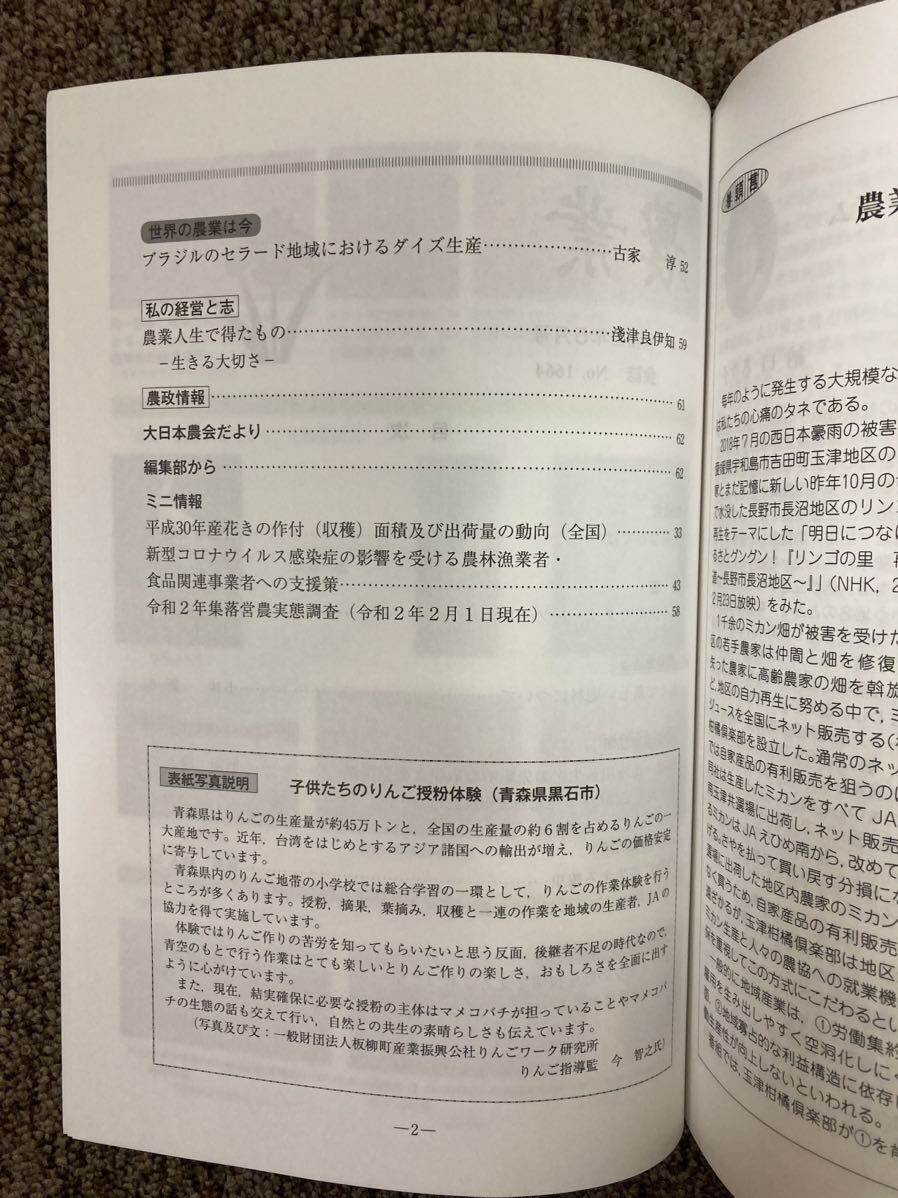 世界の農業は今
ブラジルのセラード地域におけるダイズ生産……………古家　淳 52
私の経営と志
農業人生で得たもの……………淺津良伊知 59
−生きる大切さ−
農政情報……………61
大日本農会だより……………62
編集部から……………62
ミニ情報
平成30年産花きの作付（収穫）面積及び出荷量の動向（全国）……………33
新型コロナウイルス感染症の影響を受ける農林漁業者・
食品関連事業者への支援策……………43
令和２年集落営農実態調査（令和２年２月１日現在）……………58
表紙写真説明　子供たちのりんご授粉体験（青森県黒石市）
青森県はりんごの生産量が約45万トンと，全国の生産量の約６割を占めるりんごの一
大産地です。近年，台湾をはじめとするアジア諸国への輸出が増え，りんごの価格安定
に寄与しています。
青森県内のりんご地帯の小学校では総合学習の一環として，りんごの作業体験を行う
ところが多くあります。授粉，摘果，葉摘み，収穫と一連の作業を地域の生産者，JAの
協力を得て実施しています。
体験ではりんご作りの苦労を知ってもらいたいと思う反面，後継者不足の時代なので，
青空のもとで行う作業はとても楽しいとりんご作りの楽しさ，おもしろさを全面に出す
ように心がけています。
また，現在，結実確保に必要な授粉の主体はマメコバチが担っていることやマメコバ
チの生態の話も交えて行い，自然との共生の素晴らしさも伝えています。
（写真及び文：一般財団法人板柳町産業振興公社りんごワーク研究所
りんご指導監　今　智之氏）
―2―
巻頭言
農業
毎年のように発生する大規模な
は私たちの心痛のタネである。
2018年７月の西日本豪雨の被害
愛媛県宇和島市吉田町玉津地区の
家とまだ記憶に新しい昨年10月の
で水没した長野市長沼地区のリン
再生をテーマにした「明日につなげ
るさとグングン！『リンゴの里　再
道〜長野市長沼地区〜』」（NHK，2
２月23日放映）をみた。
１千余のミカン畑が被害を受けた
区の若手農家は仲間と畑を修復
失った農家に高齢農家の畑を斡旋
ど，地区の自力再生に努める中で，ミ
ジュースを全国にネット販売する（
柑橘倶楽部を設立した。通常のネッ
では自家産品の有利販売を狙うのに
同社は生産したミカンをすべて JA
南玉津共選場に出荷し，ネット販売
るミカンはJAえひめ南から，改めて
げる。さやを払って買い戻す分損にな
選場に出荷した地区内農家のミカン
なく買うため，自家産品の有利販売
遠ざかるが，玉津柑橘倶楽部は地区
ミカン生産と人々の農協への就業機
保を重視してこの方式にこだわるとい
一般的に地域産業は，①労働集約
雇用を生み出しやすく空洞化しに
②地域寡占的な利益構造に依存
生産性が向上しないといわれる。
番組では，玉津柑橘倶楽部が①を